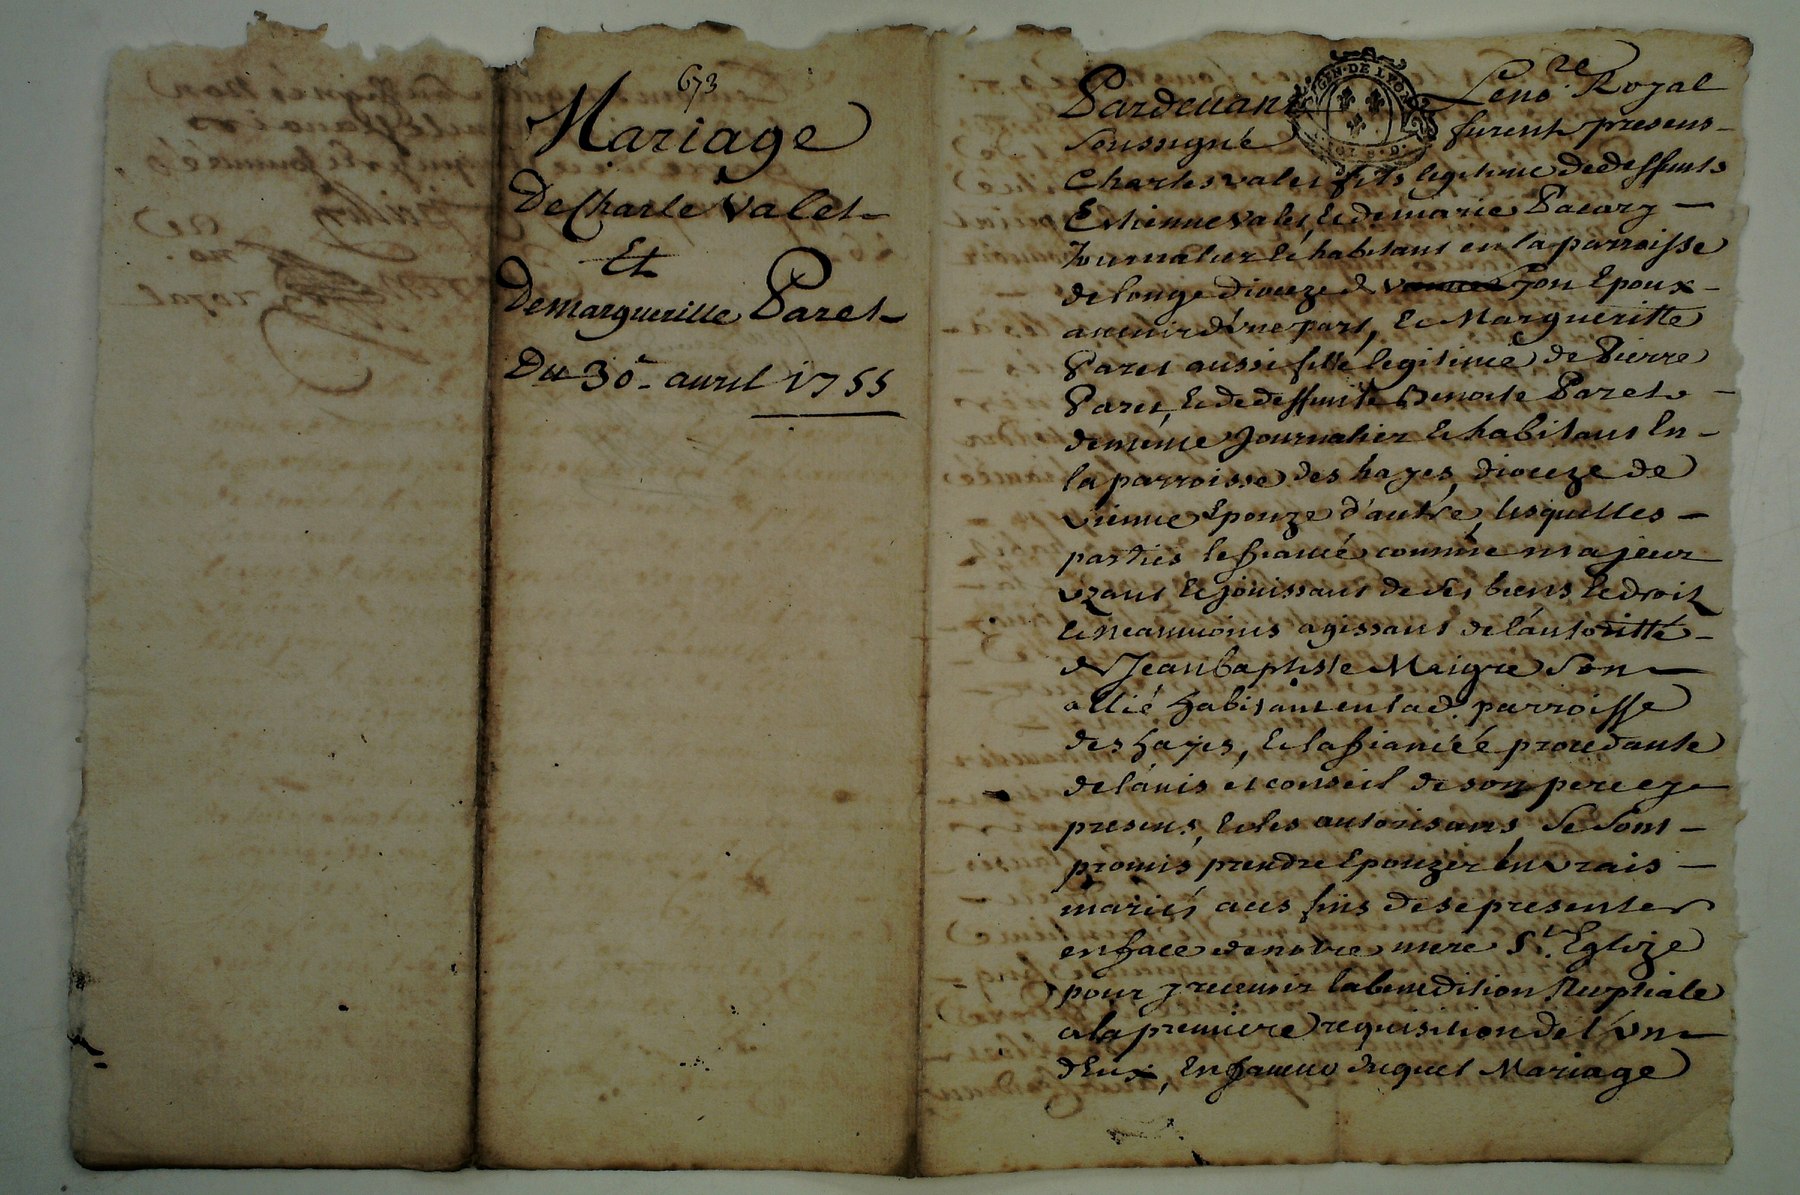 673
Mariage
De Charle Valet
Et
De margueritte Paret
Du 30e. avril 1755
Pardevant Le no.re Royal
soussigné furent presens
Charles valet fils legitime de deffunts
Estienne valet, & de marie Pacory
Journalier & habitant en la parroisse
de longe dioceze de vienne son Epoux
avenir d'une part, & Margueritte
Paret aussi fille legitime de Pierre
Paret, & de deffunte Benoite Paret
de même Journalier & habitant En
la parroisse des hayes, dioceze de
vienne Epouze d'autre, lesquelles
parties le fiancé comme majeur
uzant & jouissant de ses biens & droit
& neanmoins agissant de l'autoritté
de Jean baptiste Maigre son
allié habitant en lad. parroisse
des hayes, & la fiancéé procedante
de l'avis et conseil de son pere cy
present, & les autorisant, se sont
promis, prendre Epouzer en vrais
mariés aux fins de se presenter
en face de notre mere Ste. Eglize
pour y recevoir la benedition Nuptiale
a la premiere requisition de l'un
d'Eux, En faveur duquel Mariage
GEN. DE LYON